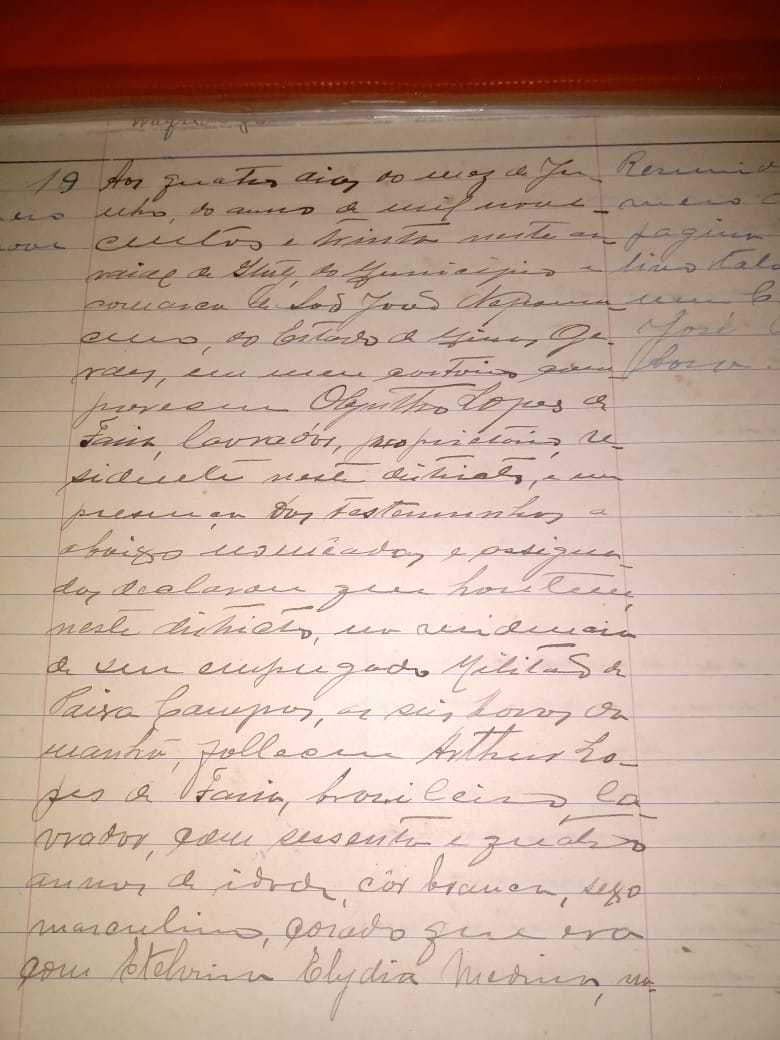 19 Aos quatro dias do mez de Ju-
nho, do anno de mil nove-
centos e trinta neste ar-
raial de do Municipio e
comarca de São João Nepomu-
ceno, do Estado de Minas Ge-
raes, em meu cartorio com-
pareceu Olyntho Lopes de
Faria, lavrador, proprietario, re-
sidente neste districto, e em
presença das testemunhas a
abaixo nomeadas e assigna-
das declarou que hontem,
neste districto, na residencia
de seu empregado Militão de
Paiva Campos, as seis horas da
manhã, falleceu Arthur Lo-
pes de Faria, brasileiro, la-
vrador, com sessenta e quatro
annos de idade, côr branca, sexo
masculino, casado que era
com Etelvina Elydia Medina, na-
mero
pagina
livro talão
José